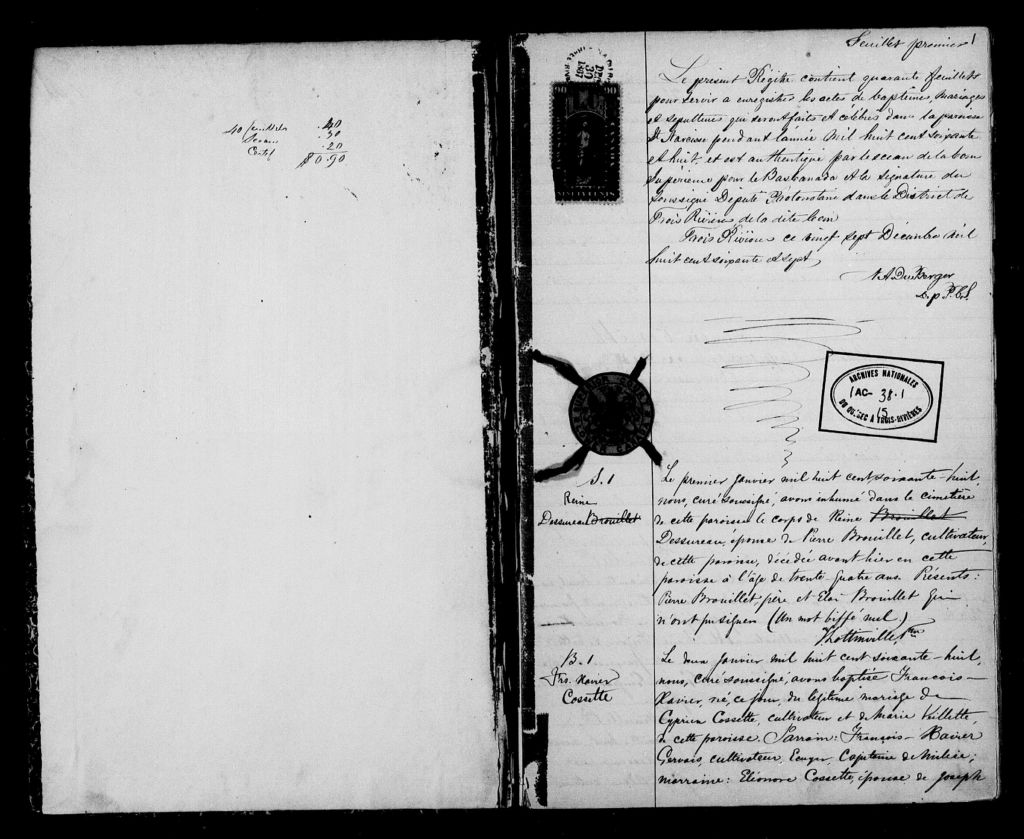 40 feuillets .40
Sceau .30
Certif .20
$0.90
Feuillet premier 1
DEC
30
1867
90
90
Le présent Régitre contient quarante feuillets
pour servir a enregistrer les actes de baptêmes, mariages
et sepultures qui seront faits et célébrés dans la paroisse
St Narcisse pendant l'année mil huit cent soixante
et huit et est authentiqué par le sceau de la cour
Supérieure pour le Bas Canada et la signature du
soussigné Député Protonotaire dans le District de
Trois Rivières de la dite Cour
Trois Rivières ce vingt sept Décembre mil
huit cent soixante et sept
D. p P. C. S.
ARCHIVES NATIONALES
IAC- 38-1
15
DU QUÉBEC A TROIS-RIVIÈRES
S. 1
Reine
Dessureau Brouillet
Le premier janvier mil huit cent soixante-huit,
nous, curé soussigné, avons inhumé dans le cimetière
de cette paroisse le corps de Reine Brouillet
Dessureau, épouse de Pierre Brouillet, cultivateur,
de cette paroisse, décédée avant-hier en cette
paroisse à l'âge de trente-quatre ans. Présents:
Pierre Brouillet, père et Eloi Brouillet qui
n'ont pu signer. (Un mot biffé nul.)
B. 1
Frs. Xavier
Cossette
Le deux janvier mil huit cent soixante-huit,
nous, curé soussigné, avons baptisé François-
Xavier, né, ce jour, du légitime mariage de
Cyprien Cossette, cultivateur et de Marie
de cette paroisse. Parrain: François-Xavier
Gervais, cultivateur, Ecuyer, Capitaine de Milice;
marraine: Eléonore Cossette, épouse de Joseph